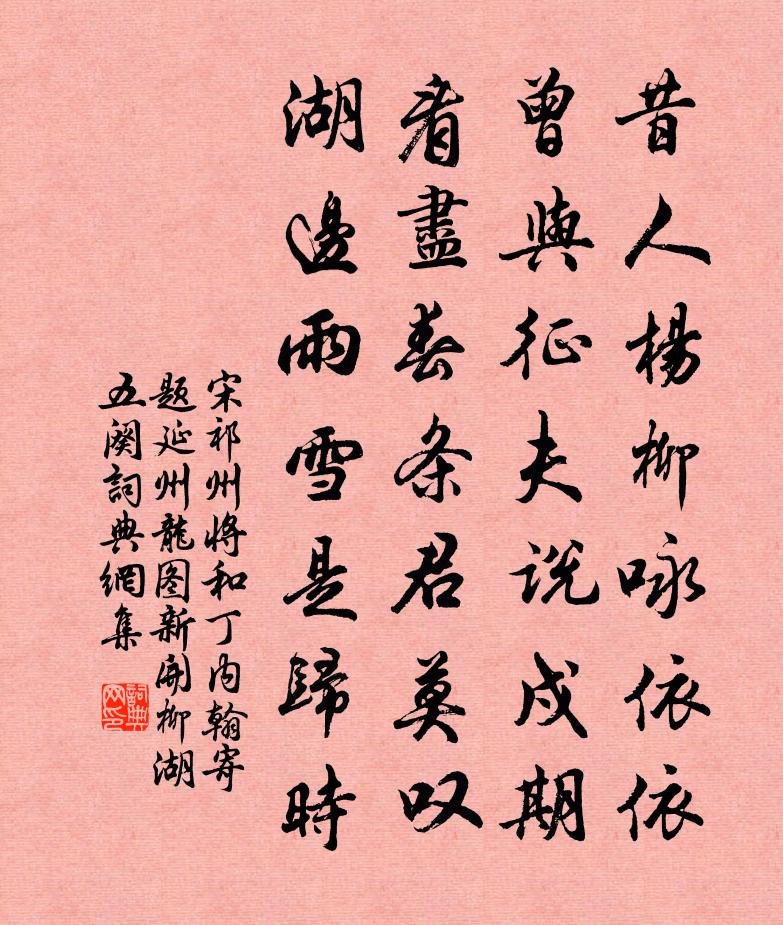 昔人楊柳咏依依
曾與征夫説戍期
看盡春条君莫叹
湖邊雨雪是歸時
宋祁州將和丁内翰寄
题延州龍图新開柳湖
五闋詞典網集
詞典网印